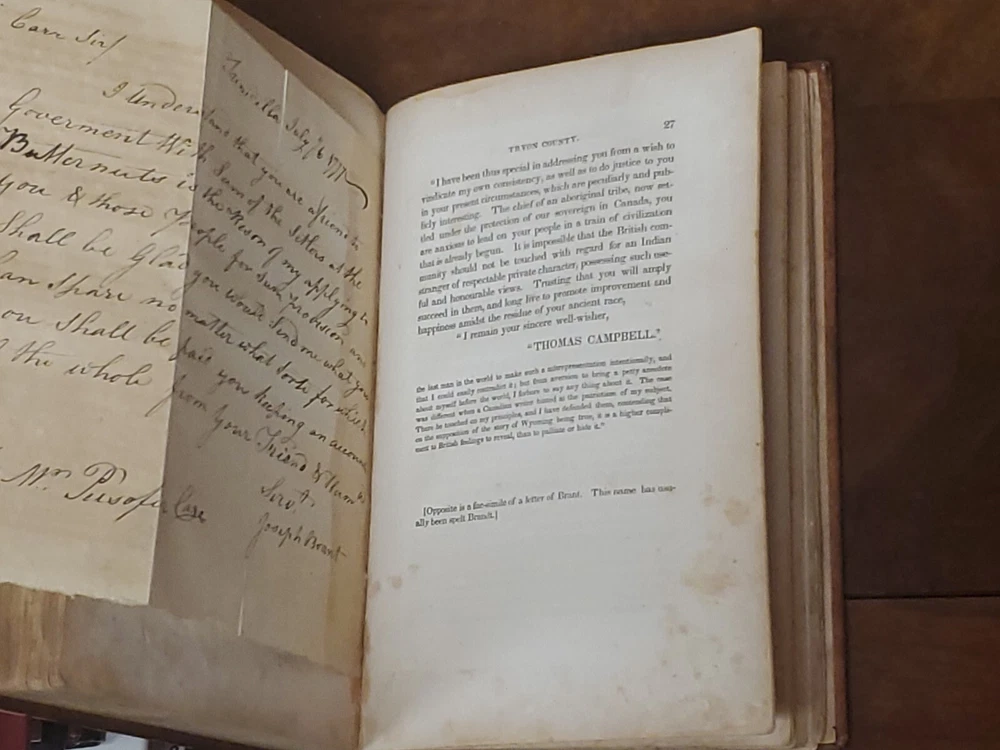 Carr Sir/
Tunadilla July 9 1777
I Understand that you are a friend to
Goverment With Sum of the Settlers at the
Butternuts is the Reson of my applying to
you & those People for Sum provision and
Shall be Glad you would Send me what you
Can Spare no matter what Sorte for which
you Shall be paid you keeping an account
of the whole from Your Friend & Hum
Servt
Joseph Brant
Mr Persafer Carr
TRYON COUNTY. 27
"I have been thus special in addressing you from a wish to
vindicate my own consistency, as well as to do justice to you
in your present circumstances, which are peculiarly and pub-
licly interesting. The chief of an aboriginal tribe, now set-
tled under the protection of our sovereign in Canada, you
are anxious to lead on your people in a train of civilization
that is already begun. It is impossible that the British com-
munity should not be touched with regard for an Indian
stranger of respectable private character, possessing such use-
ful and honourable views. Trusting that you will amply
succeed in them, and long live to promote improvement and
happiness amidst the residue of your ancient race,
"I remain your sincere well-wisher,
"THOMAS CAMPBELL."
the last man in the world to make such a misrepresentation intentionally, and
that I could easily contradict it; but from aversion to bring a petty anecdote
about myself before the world, I forbore to say any thing about it. The case
was different when a Canadian writer hinted at the patriotism of my subject.
There he touched on my principles, and I have defended them, contending that
on the supposition of the story of Wyoming being true, it is a higher compli-
ment to British feelings to reveal, than to palliate or hide it."
[Opposite is a fac-simile of a letter of Brant. This name has usu-
ally been spelt Brandt.]